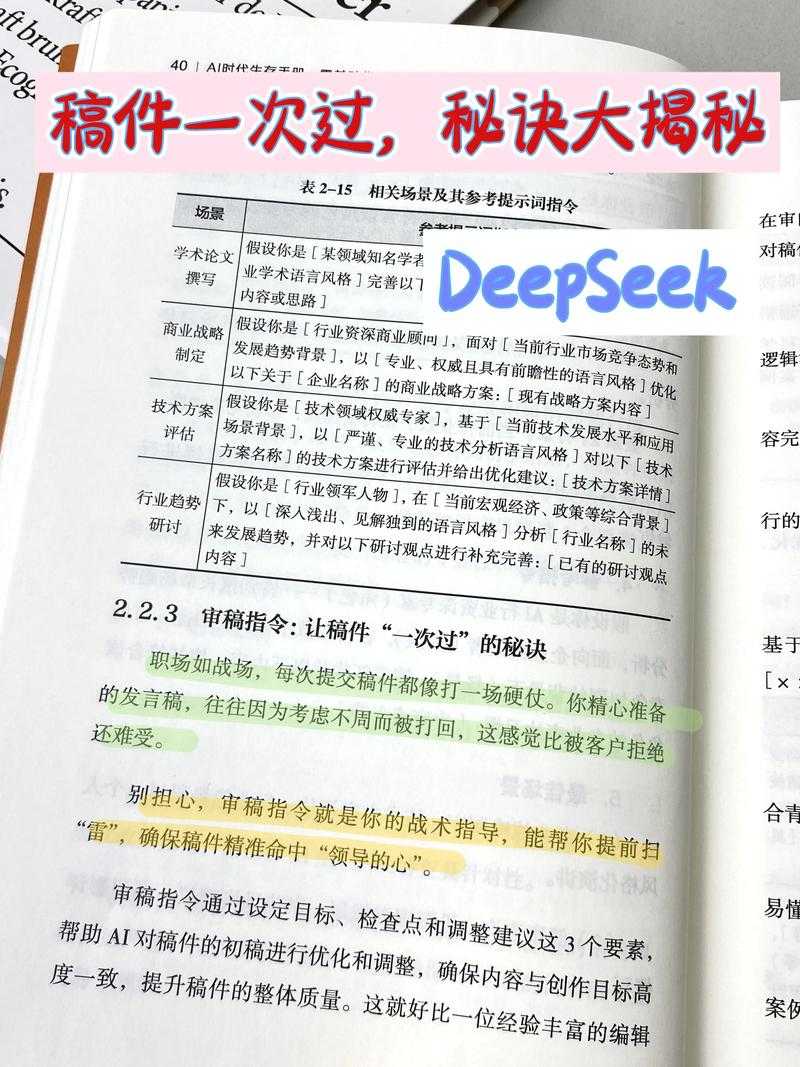 er
Kraft
aft brun
Ecogr
is.
40 | AI时代生存手册
稿件一次过，秘诀大揭秘
表 2-15 相关场景及其参考提示词指令
场景
DeepSeek
学术论文
撰写
假设你是［某领域知名学者
业学术语言风格］完善以下
内容或思路］
商业战略
制定
假设你是［行业资深商业顾问］，面对［当前行业市场竞争态势和
发展趋势背景］，以［专业、权威且具有前瞻性的语言风格］优化
以下关于［企业名称］的商业战略方案：［现有战略方案内容］
技术方案
评估
假设你是［技术领域权威专家］，基于［当前技术发展水平和应用
场景背景］，以［严谨、专业的技术分析语言风格］对以下［技术
方案名称］的技术方案进行评估并给出优化建议：［技术方案详情］
行业趋势
研讨
假设你是［行业领军人物］，在［当前宏观经济、政策等综合背景］
下，以［深入浅出、见解独到的语言风格］分析［行业名称］的未
来发展趋势，并对以下研讨观点进行补充完善：［已有的研讨观点
内容］
2.2.3 审稿指令：让稿件“一次过”的秘诀
职场如战场，每次提交稿件都像打一场硬仗。你精心准备
的发言稿，往往因为考虑不周而被打回，这感觉比被客户拒绝
还难受。
别担心，审稿指令就是你的战术指导，能帮你提前扫
“雷”，确保稿件精准命中“领导的心”。
审稿指令通过设定目标、检查点和调整建议这 3 个要素，
帮助 AI 对稿件的初稿进行优化和调整，确保内容与创作目标高
度一致，提升稿件的整体质量。这就好比一位经验丰富的编辑
在审
对稿
逻辑
容完
行的
基于
［×
合青
易懂
案例